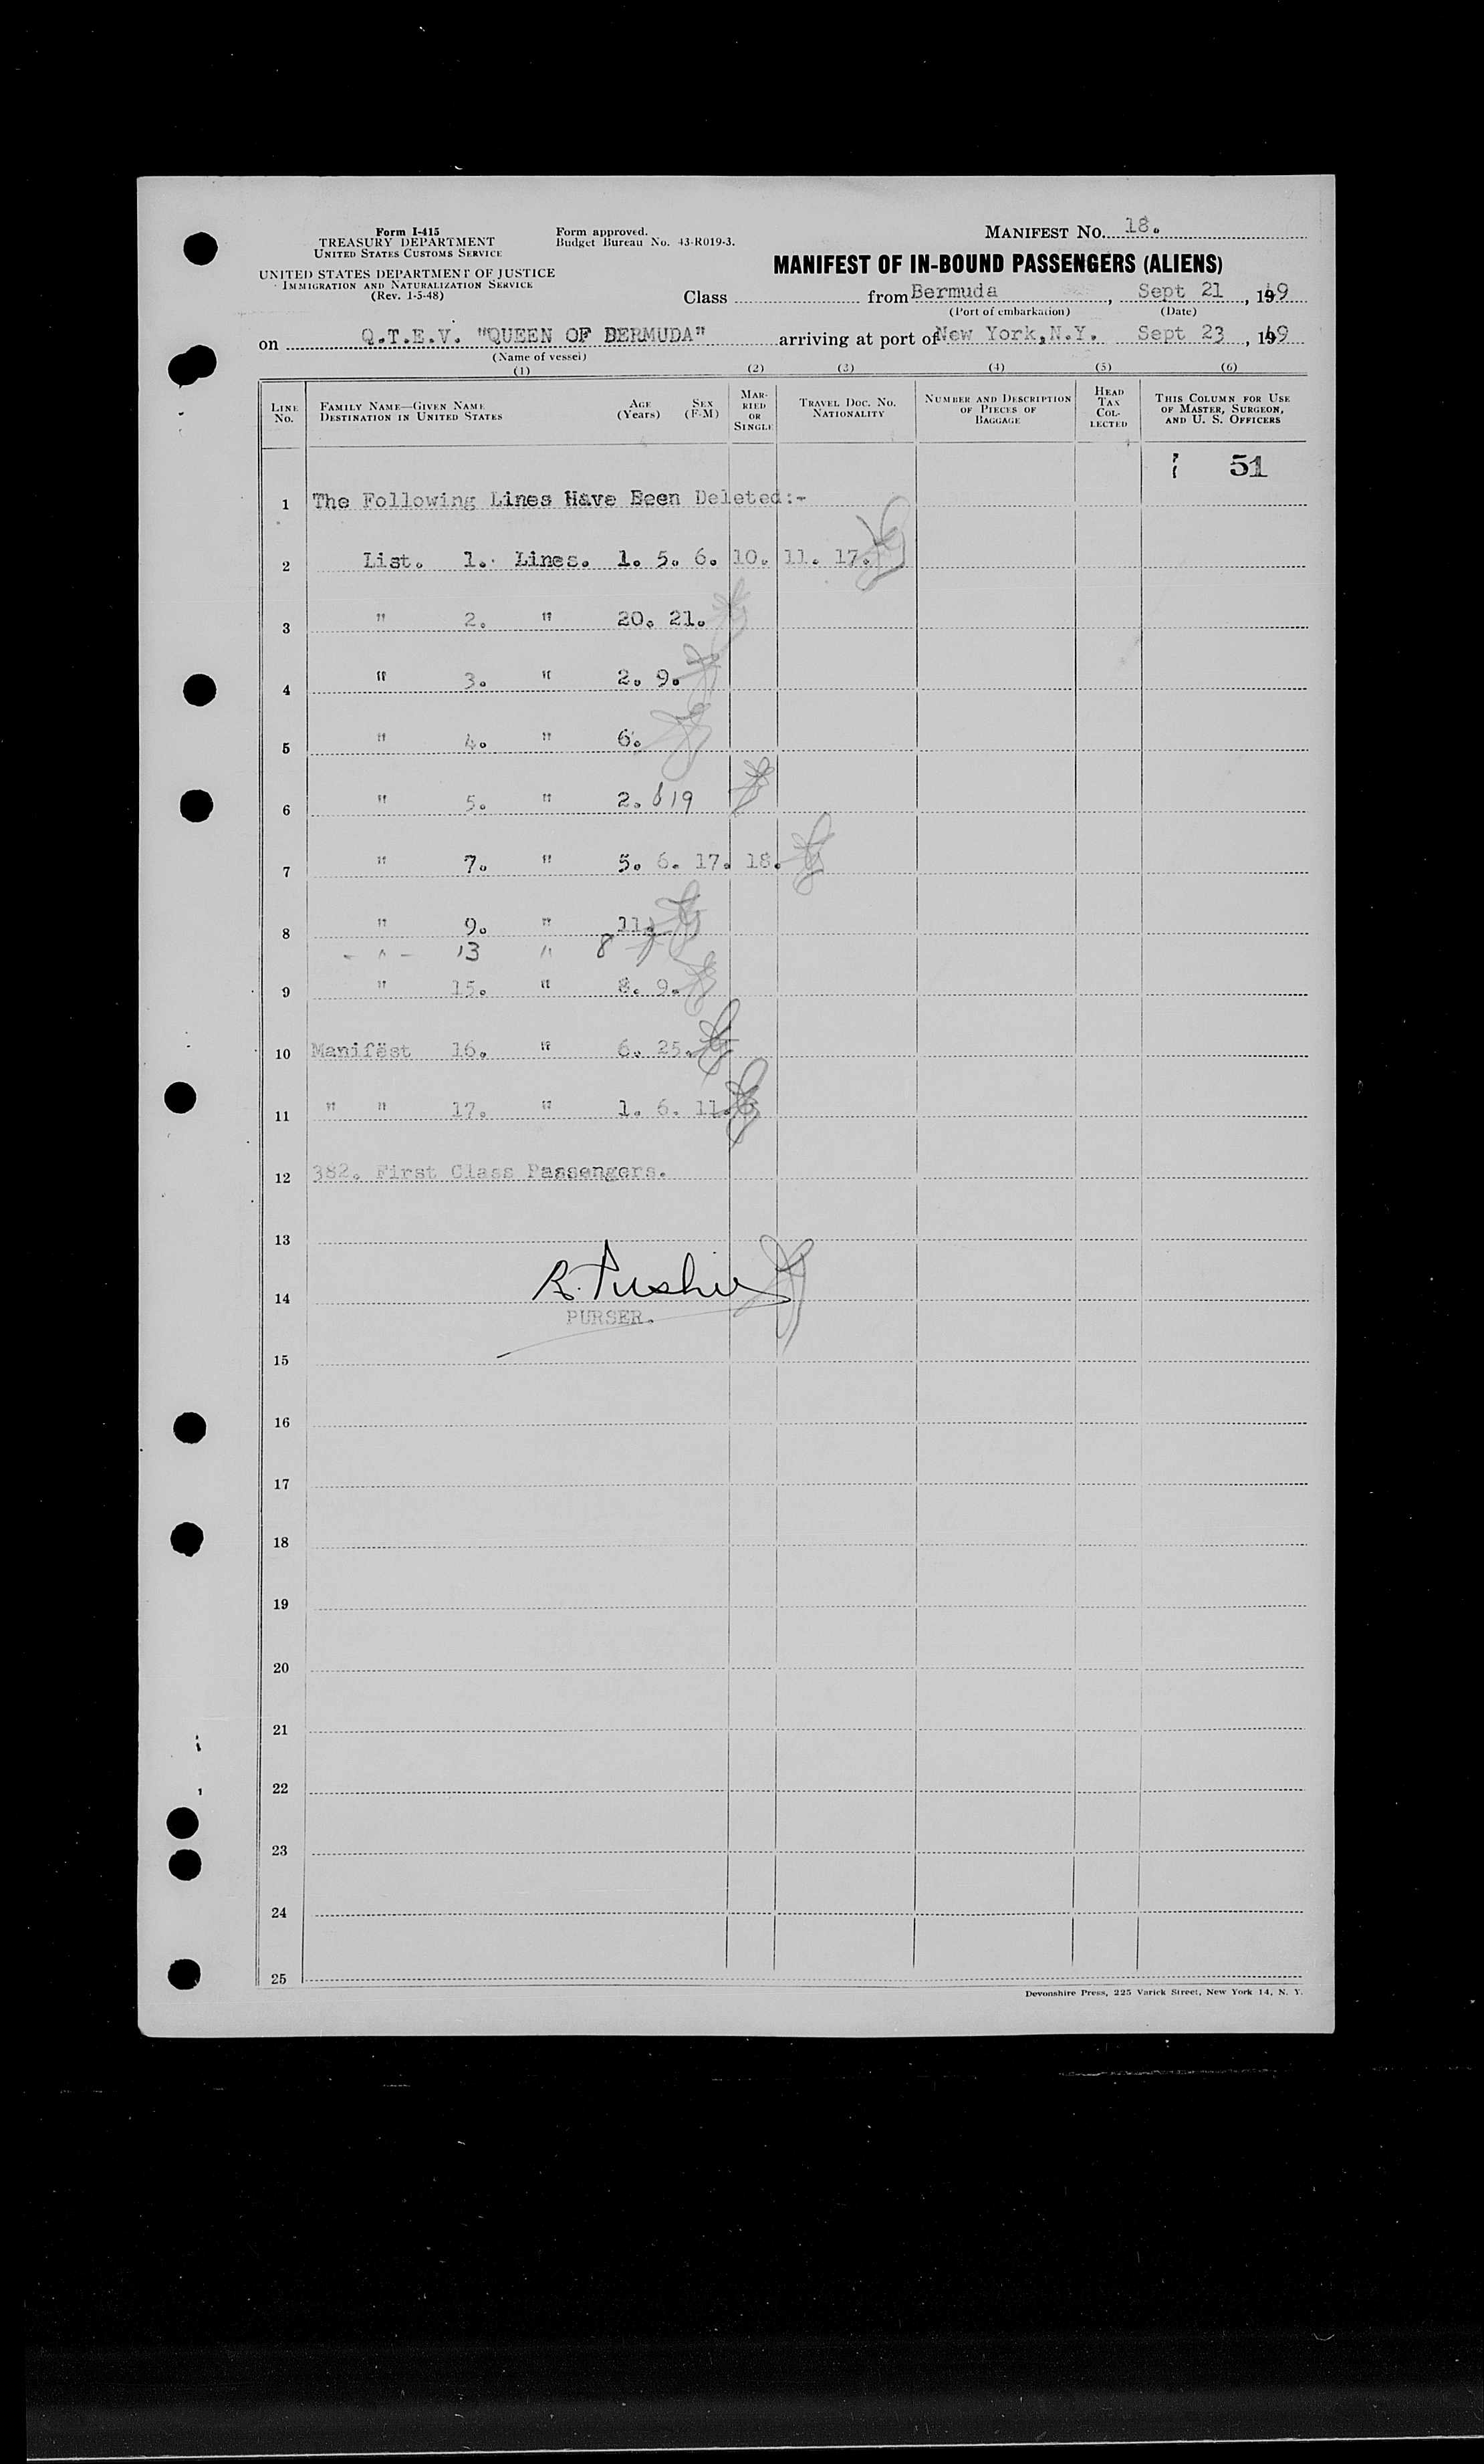 Form I-415
TREASURY DEPARTMENT
UNITED STATES CUSTOMS SERVICE
UNITED STATES DEPARTMENT OF JUSTICE
IMMIGRATION AND NATURALIZATION SERVICE
(Rev. 1-5-48)
Form approved.
Budget Bureau No. 43-R019-3.
MANIFEST No. 18.
MANIFEST OF IN-BOUND PASSENGERS (ALIENS)
Class from Bermuda, Sept 21, 1949
(Port of embarkation) (Date)
on Q.T.E.V. "QUEEN OF BERMUDA" arriving at port of New York, N.Y. Sept 23, 1949
(Name of vessel)
(1) (2) (3) (4) (5) (6)
LINE No. FAMILY NAME—GIVEN NAME DESTINATION IN UNITED STATES AGE (Years) SEX (F-M) MARRIED OR SINGLE TRAVEL DOC. NO. NATIONALITY NUMBER AND DESCRIPTION OF PIECES OF BAGGAGE HEAD TAX COLLECTED THIS COLUMN FOR USE OF MASTER, SURGEON, AND U. S. OFFICERS
51
1 The Following Lines Have Been Deleted:-
2 List. 1. Lines. 1. 5. 6. 10. 11. 17.
3 " 2. " 20. 21.
4 " 3. " 2. 9.
5 " 4. " 6.
6 " 5. " 2. & 19
7 " 7. " 5. 6. 17. 18.
8 " 9. " 11.
- " - 13 " 8
9 " 15. " 8. 9.
10 Manifest 16. " 6. 25.
11 " " 17. " 1. 6. 11.
12 382. First Class Passengers.
13
14
PURSER.
15
16
17
18
19
20
21
22
23
24
25
Devonshire Press, 225 Varick Street, New York 14, N. Y.